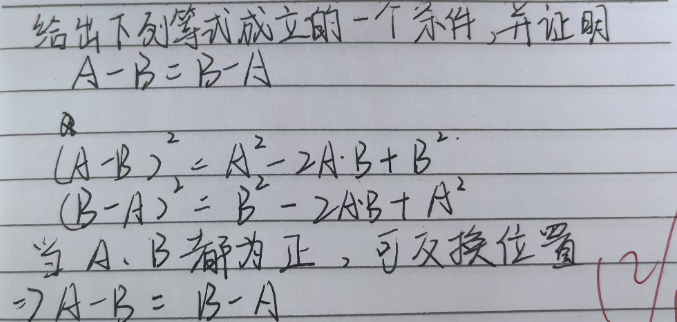 给出下列等式成立的一个条件,并证明
A-B=B-A
(A-B)²=A²-2A·B+B²
(B-A)²=B²-2A·B+A²
当A、B都为正,可反换位置
=>A-B=B-A